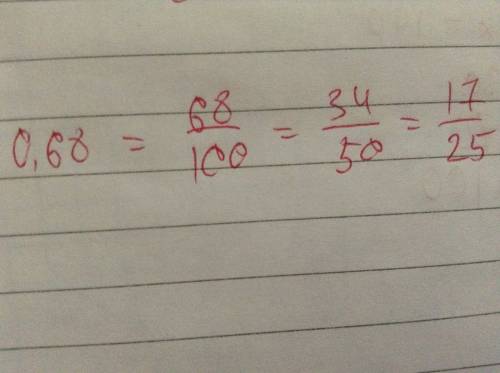 0,68 = 68/100 = 34/50 = 17/25